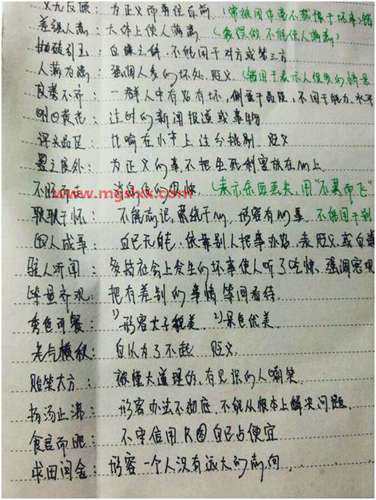 义无反顾：为正义而勇往直前
差强人意：大体上使人满意
抛砖引玉：自谦之辞，不能用于对方或第三方
人满为患：强调人多的坏处，贬义
良莠不齐：一群人中有好有坏，侧重于品质，不用于
明日黄花：过时的新闻报道或事物
评头品足：比喻在小节上过分挑剔，贬义
置之度外：为正义的事不把生死利害放在心上
www.mgshxx.com
耿耿于怀：不能忘记，牵挂于心，形容有心事，不能用于
因人成事：自己无能，依靠别人把事办好，表贬义或自谦
骇人听闻：多指社会上发生的坏事使人听了吃惊，强调客观
等量齐观：把有差别的事情等同看待
秀色可餐：1)形容女子貌美 2)景色优美
老气横秋：自以为了不起 贬义
贻笑大方：被懂大道理的，有见识的人嘲笑
扬汤止沸：形容办法不彻底，不能从根本上解决问题
食言而肥：不守信用只图自己占便宜
求田问舍：形容一个人没有远大的志向